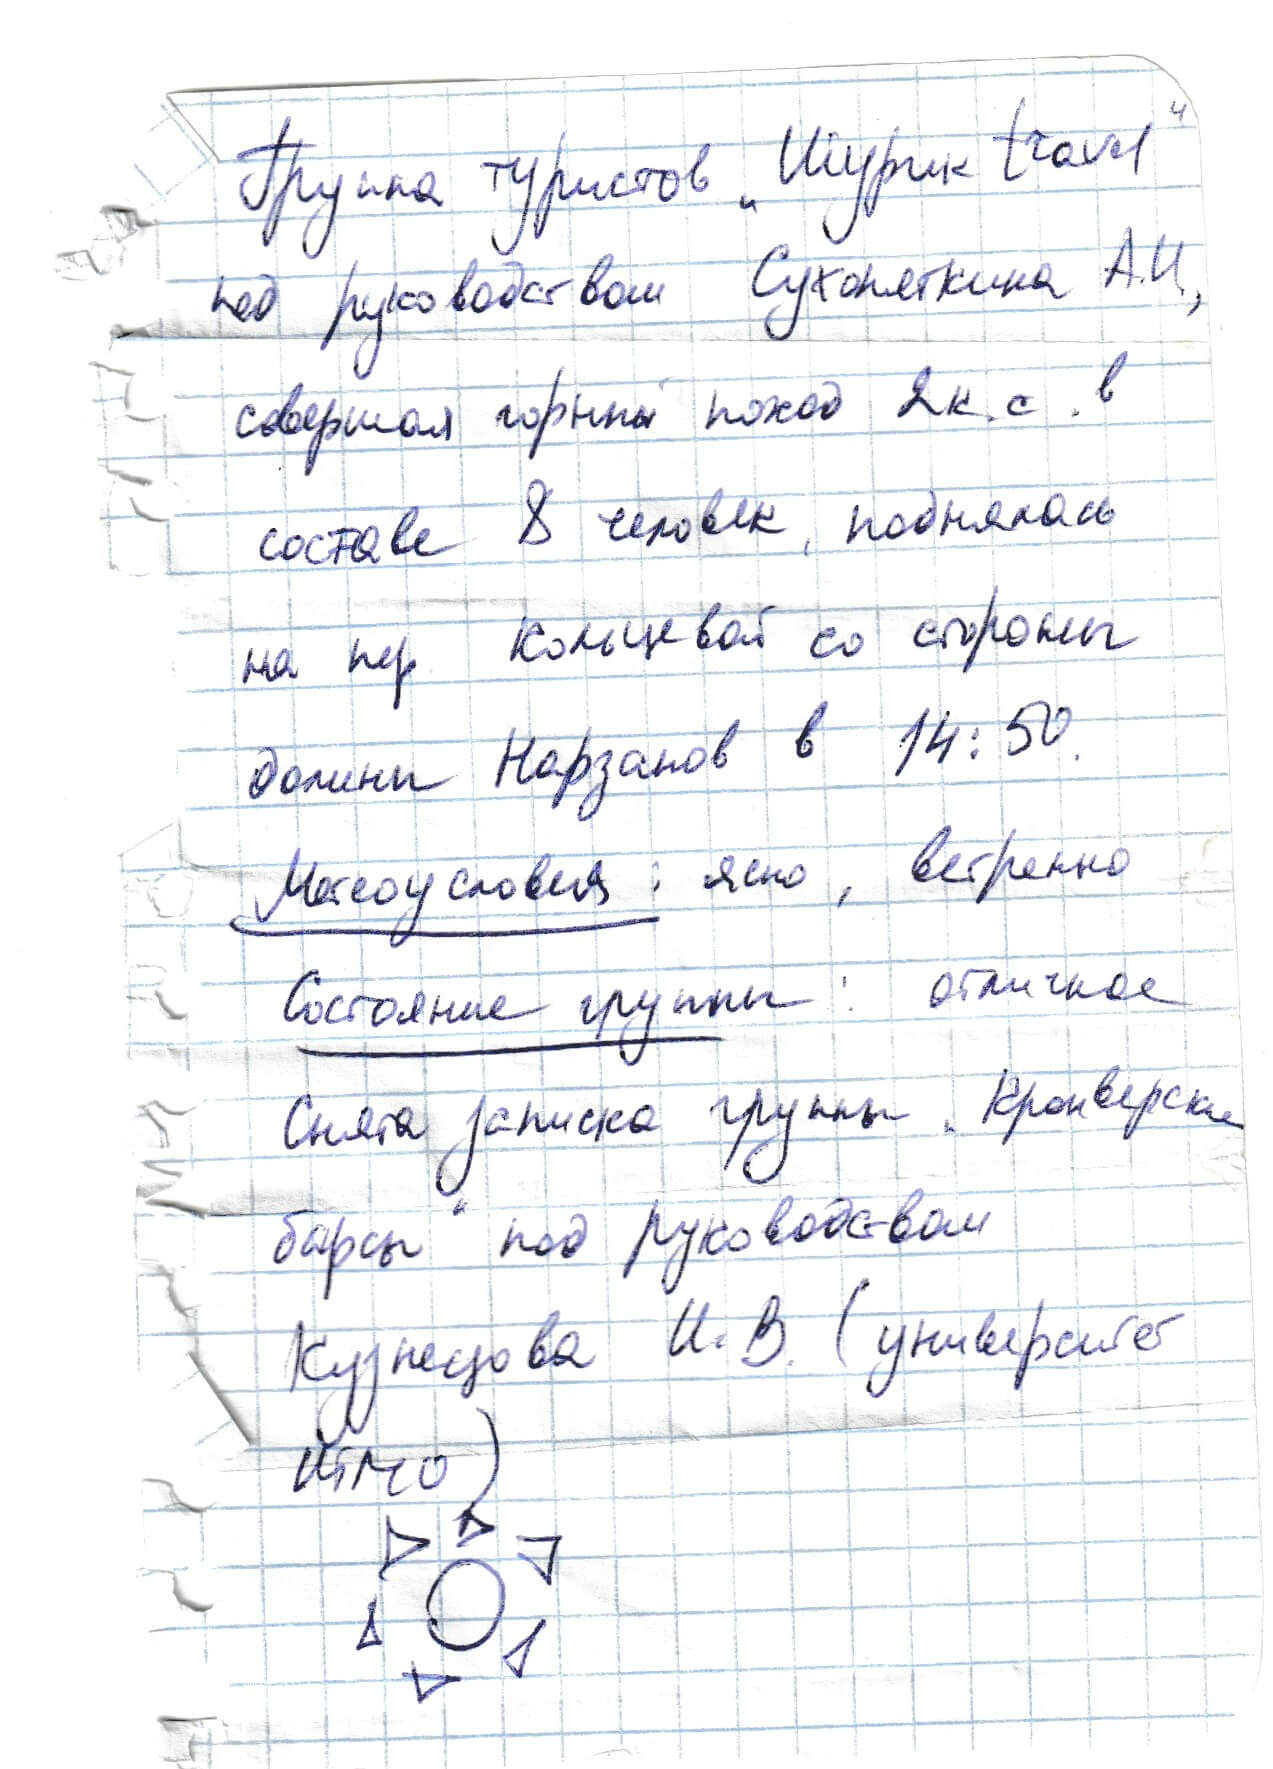 Группа туристов „Шурик travel"
под руководством Сухопяткина А.И,
совершая горный поход 2к.с. в
составе 8 человек, поднялась
на пер. Кольцевой со стороны
долины Нарзанов в 14:50.
Метеоусловия: ясно, ветренно
Состояние группы: отличное
Снята записка группы „Кронверские
барсы" под руководством
Кузнецова И.В. (университет
ИТМО)